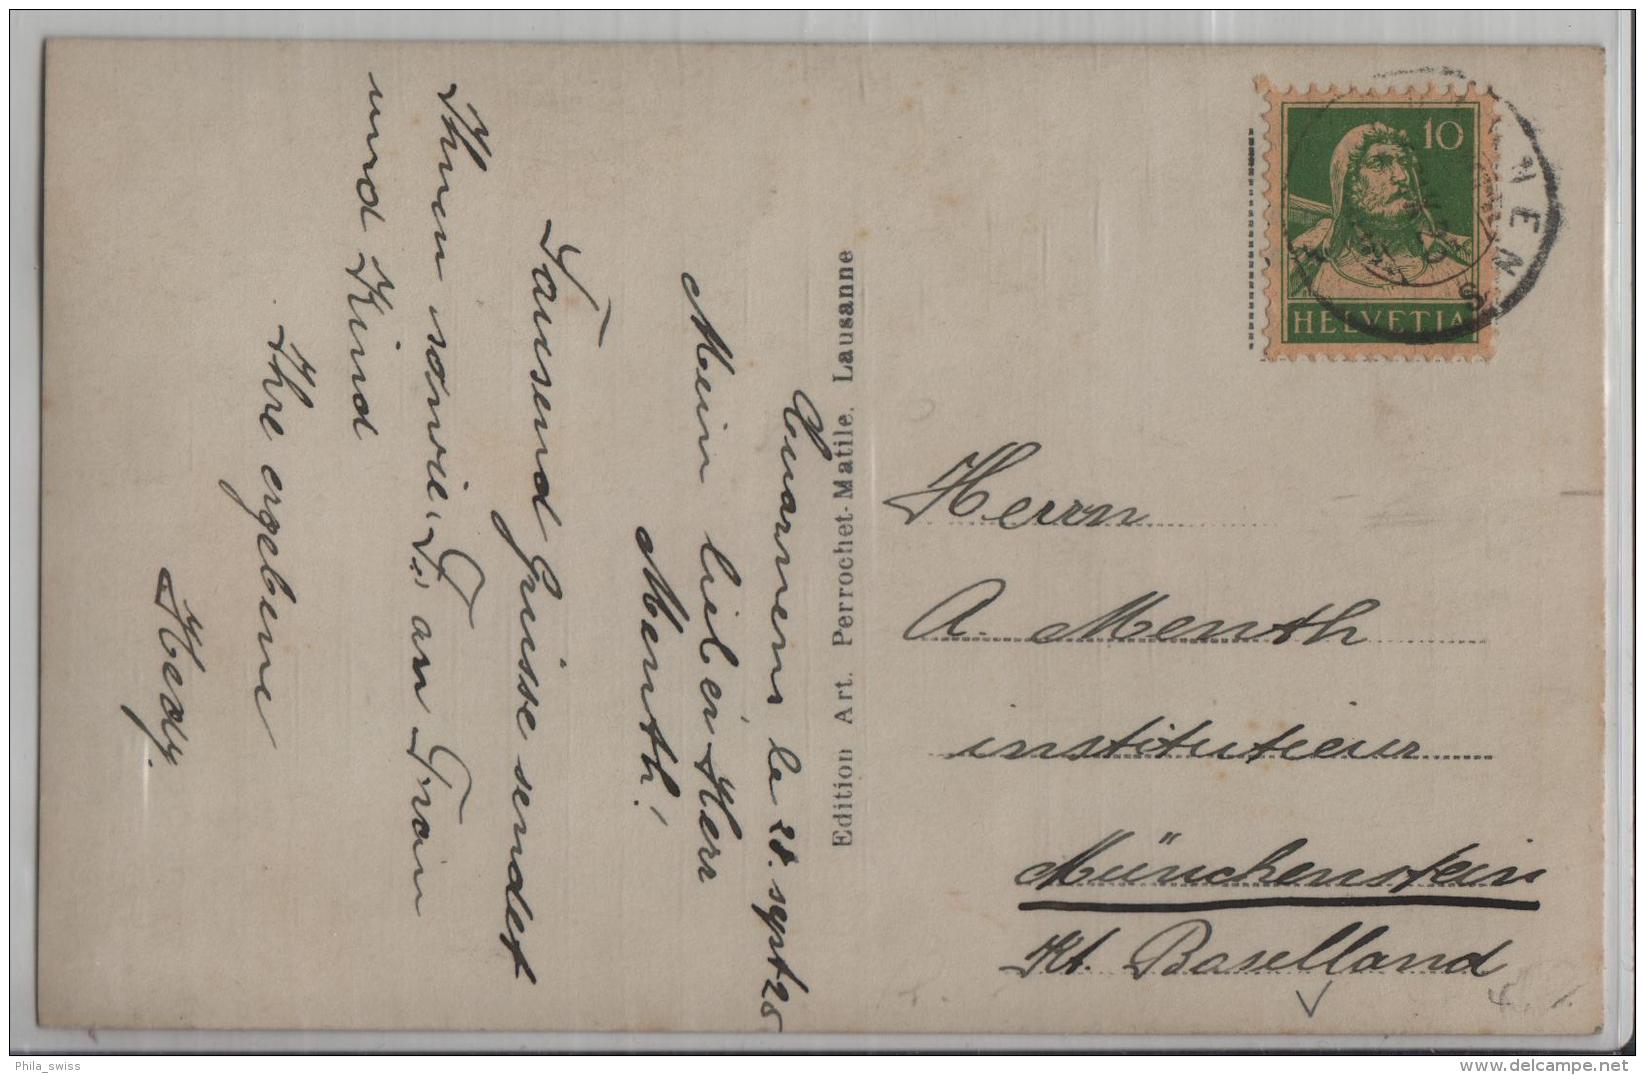 10
HELVETIA
Edition Art. Perrochet-Matile. Lausanne
Herrn
A. Menth
instituteur
Münchenstein
Kt. Baselland
le 28. sept 25
Mein lieber Herr
Menth!
Tausend Grüsse sendet
Ihnen sowie an
und Kind
Ihre ergebene
Hedy.
Phila_swiss
www.delcampe.net